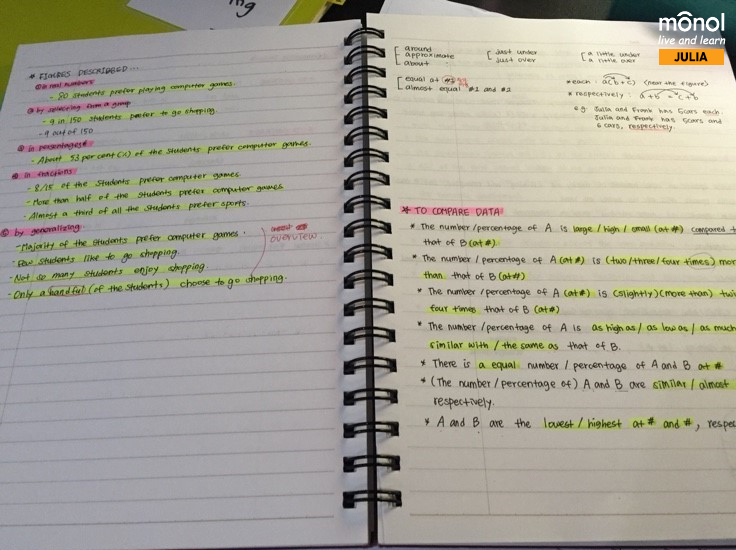 ng
mônol
live and learn
JULIA
* FIGURES DESCRIBED...
① in real numbers
- 80 students prefer playing computer games.
② by selecting from a group
- 9 in 150 students prefer to go shopping.
- 9 out of 150
③ in percentages
- About 53 per cent (%) of the students prefer computer games.
④ in fractions
- 8/15 of the students prefer computer games
- More than half of the students prefer computer games
- Almost a third of all the students prefer sports.
⑤ by generalizing
- Majority of the students prefer computer games.
- Few students like to go shopping.
- Not so many students enjoy shopping.
- Only a handful (of the students) choose to go shopping.
OVERVIEW
around
approximate
about
just under
just over
a little under
a little over
equal at #1
almost equal #1 and #2
* each : a(b+c) (near the figure)
* respectively : a+b = c+b
e.g. Julia and Frank has 5cars each.
Julia and Frank has 5cars and
6 cars, respectively.
* TO COMPARE DATA
* The number/percentage of A is large / high / small (at #) compared t
that of B (at #).
* The number/percentage of A (at #) is (two/three/four times) mor
than that of B (at #)
* The number/percentage of A (at #) is (slightly)(more than) twi
four times that of B (at #)
* The number/percentage of A is as high as / as low as / as much
similar with / the same as that of B.
* There is a equal number / percentage of A and B at #
* (The number/percentage of) A and B are similar / almost
respectively.
* A and B are the lowest / highest at # and #, respec